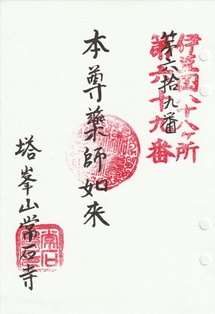 伊豆国八十八ヶ所
第六十九番
第六拾九番
本尊薬師如来
塔峯山常石寺
常石寺